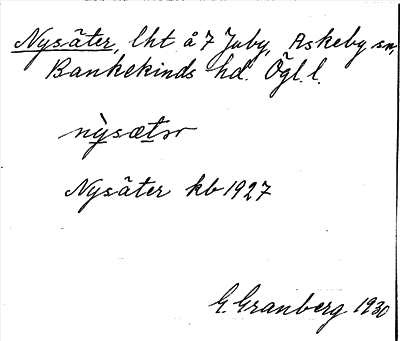 Nysäter, lht å 7 Juby, Askeby sn,
Bankekinds hd. Ögl. l.
nysætər
Nysäter kb 1927
G. Granberg 1930